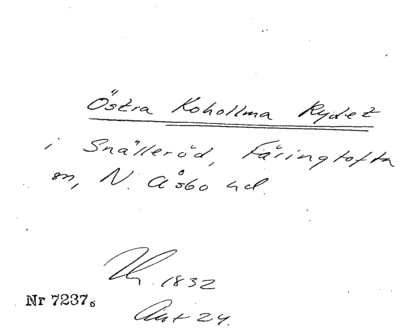 Östra Kohollma Rydet
i Snälleröd, Färingtofta
sn, N. Åsbo hd.
1832
Nr 7237.
Akt 24.